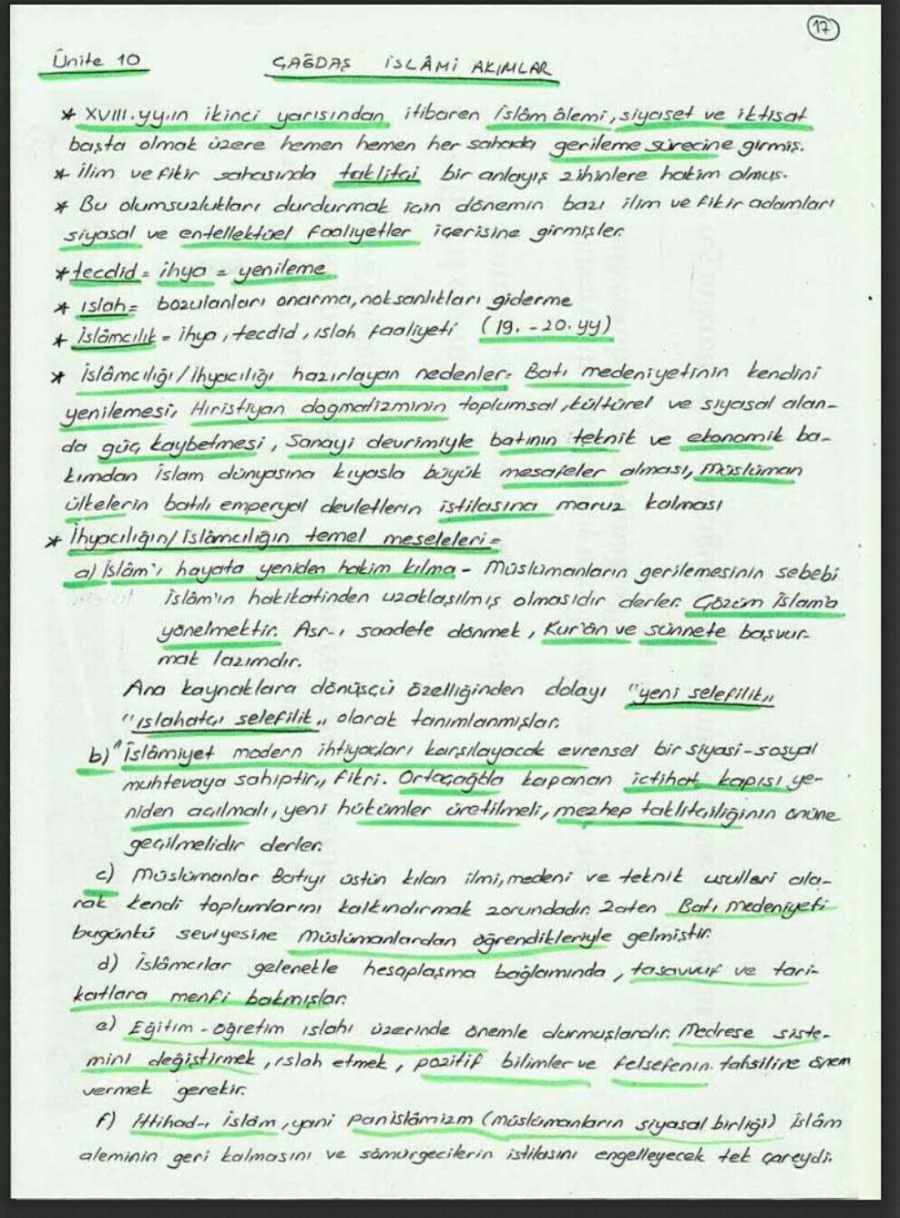 17
Ünite 10 ÇAĞDAŞ İSLÂMİ AKIMLAR
* XVIII.yy.ın ikinci yarısından itibaren İslâm âlemi, siyaset ve iktisat
başta olmak üzere hemen hemen her sahada gerileme sürecine girmiş.
* İlim ve fikir sahasında taklitçi bir anlayış zihinlere hakim olmuş.
* Bu olumsuzlukları durdurmak için dönemin bazı ilim ve fikir adamları
siyasal ve entellektüel faaliyetler içerisine girmişler.
* tecdid = ihya = yenileme
* ıslah = bozulanları onarma, noksanlıkları giderme
* İslâmcılık = ihya, tecdid, ıslah faaliyeti (19. - 20. yy)
* İslâmcılığı/İhyacılığı hazırlayan nedenler = Batı medeniyetinin kendini
yenilemesi, Hıristiyan dogmatizminin toplumsal, kültürel ve siyasal alan-
da güç kaybetmesi, Sanayi devrimiyle batının teknik ve ekonomik ba-
kımdan İslam dünyasına kıyasla büyük mesafeler alması, Müslüman
ülkelerin batılı emperyal devletlerin istilasına maruz kalması
* İhyacılığın/İslâmcılığın temel meseleleri =
a) İslâm'ı hayata yeniden hakim kılma - Müslümanların gerilemesinin sebebi
İslâm'ın hakikatinden uzaklaşılmış olmasıdır derler. Çözüm İslam'a
yönelmektir. Asr-ı saadete dönmek, Kur'ân ve sünnete başvur-
mak lazımdır.
Ana kaynaklara dönüşçü özelliğinden dolayı "yeni selefilik"
"ıslahatçı selefilik" olarak tanımlanmışlar.
b) "İslâmiyet modern ihtiyaçları karşılayacak evrensel bir siyasi-sosyal
muhtevaya sahiptir" fikri. Ortaçağda kapanan ictihat kapısı ye-
niden açılmalı, yeni hükümler üretilmeli, mezhep taklitçiliğinin önüne
geçilmelidir derler.
c) Müslümanlar Batıyı üstün kılan ilmi, medeni ve teknik usulleri ala-
rak kendi toplumlarını kalkındırmak zorundadır. Zaten Batı medeniyeti
bugünkü seviyesine Müslümanlardan öğrendikleriyle gelmiştir.
d) İslâmcılar gelenekle hesaplaşma bağlamında, tasavvuf ve tari-
katlara menfi bakmışlar.
e) Eğitim - öğretim ıslahı üzerinde önemle durmuşlardır. Medrese siste-
mini değiştirmek, ıslah etmek, pozitif bilimler ve felsefenin tahsiline önem
vermek gerekir.
f) İttihad-ı İslâm, yani panislâmizm (müslümanların siyasal birliği) İslâm
aleminin geri kalmasını ve sömürgecilerin istilasını engelleyecek tek çareydi.